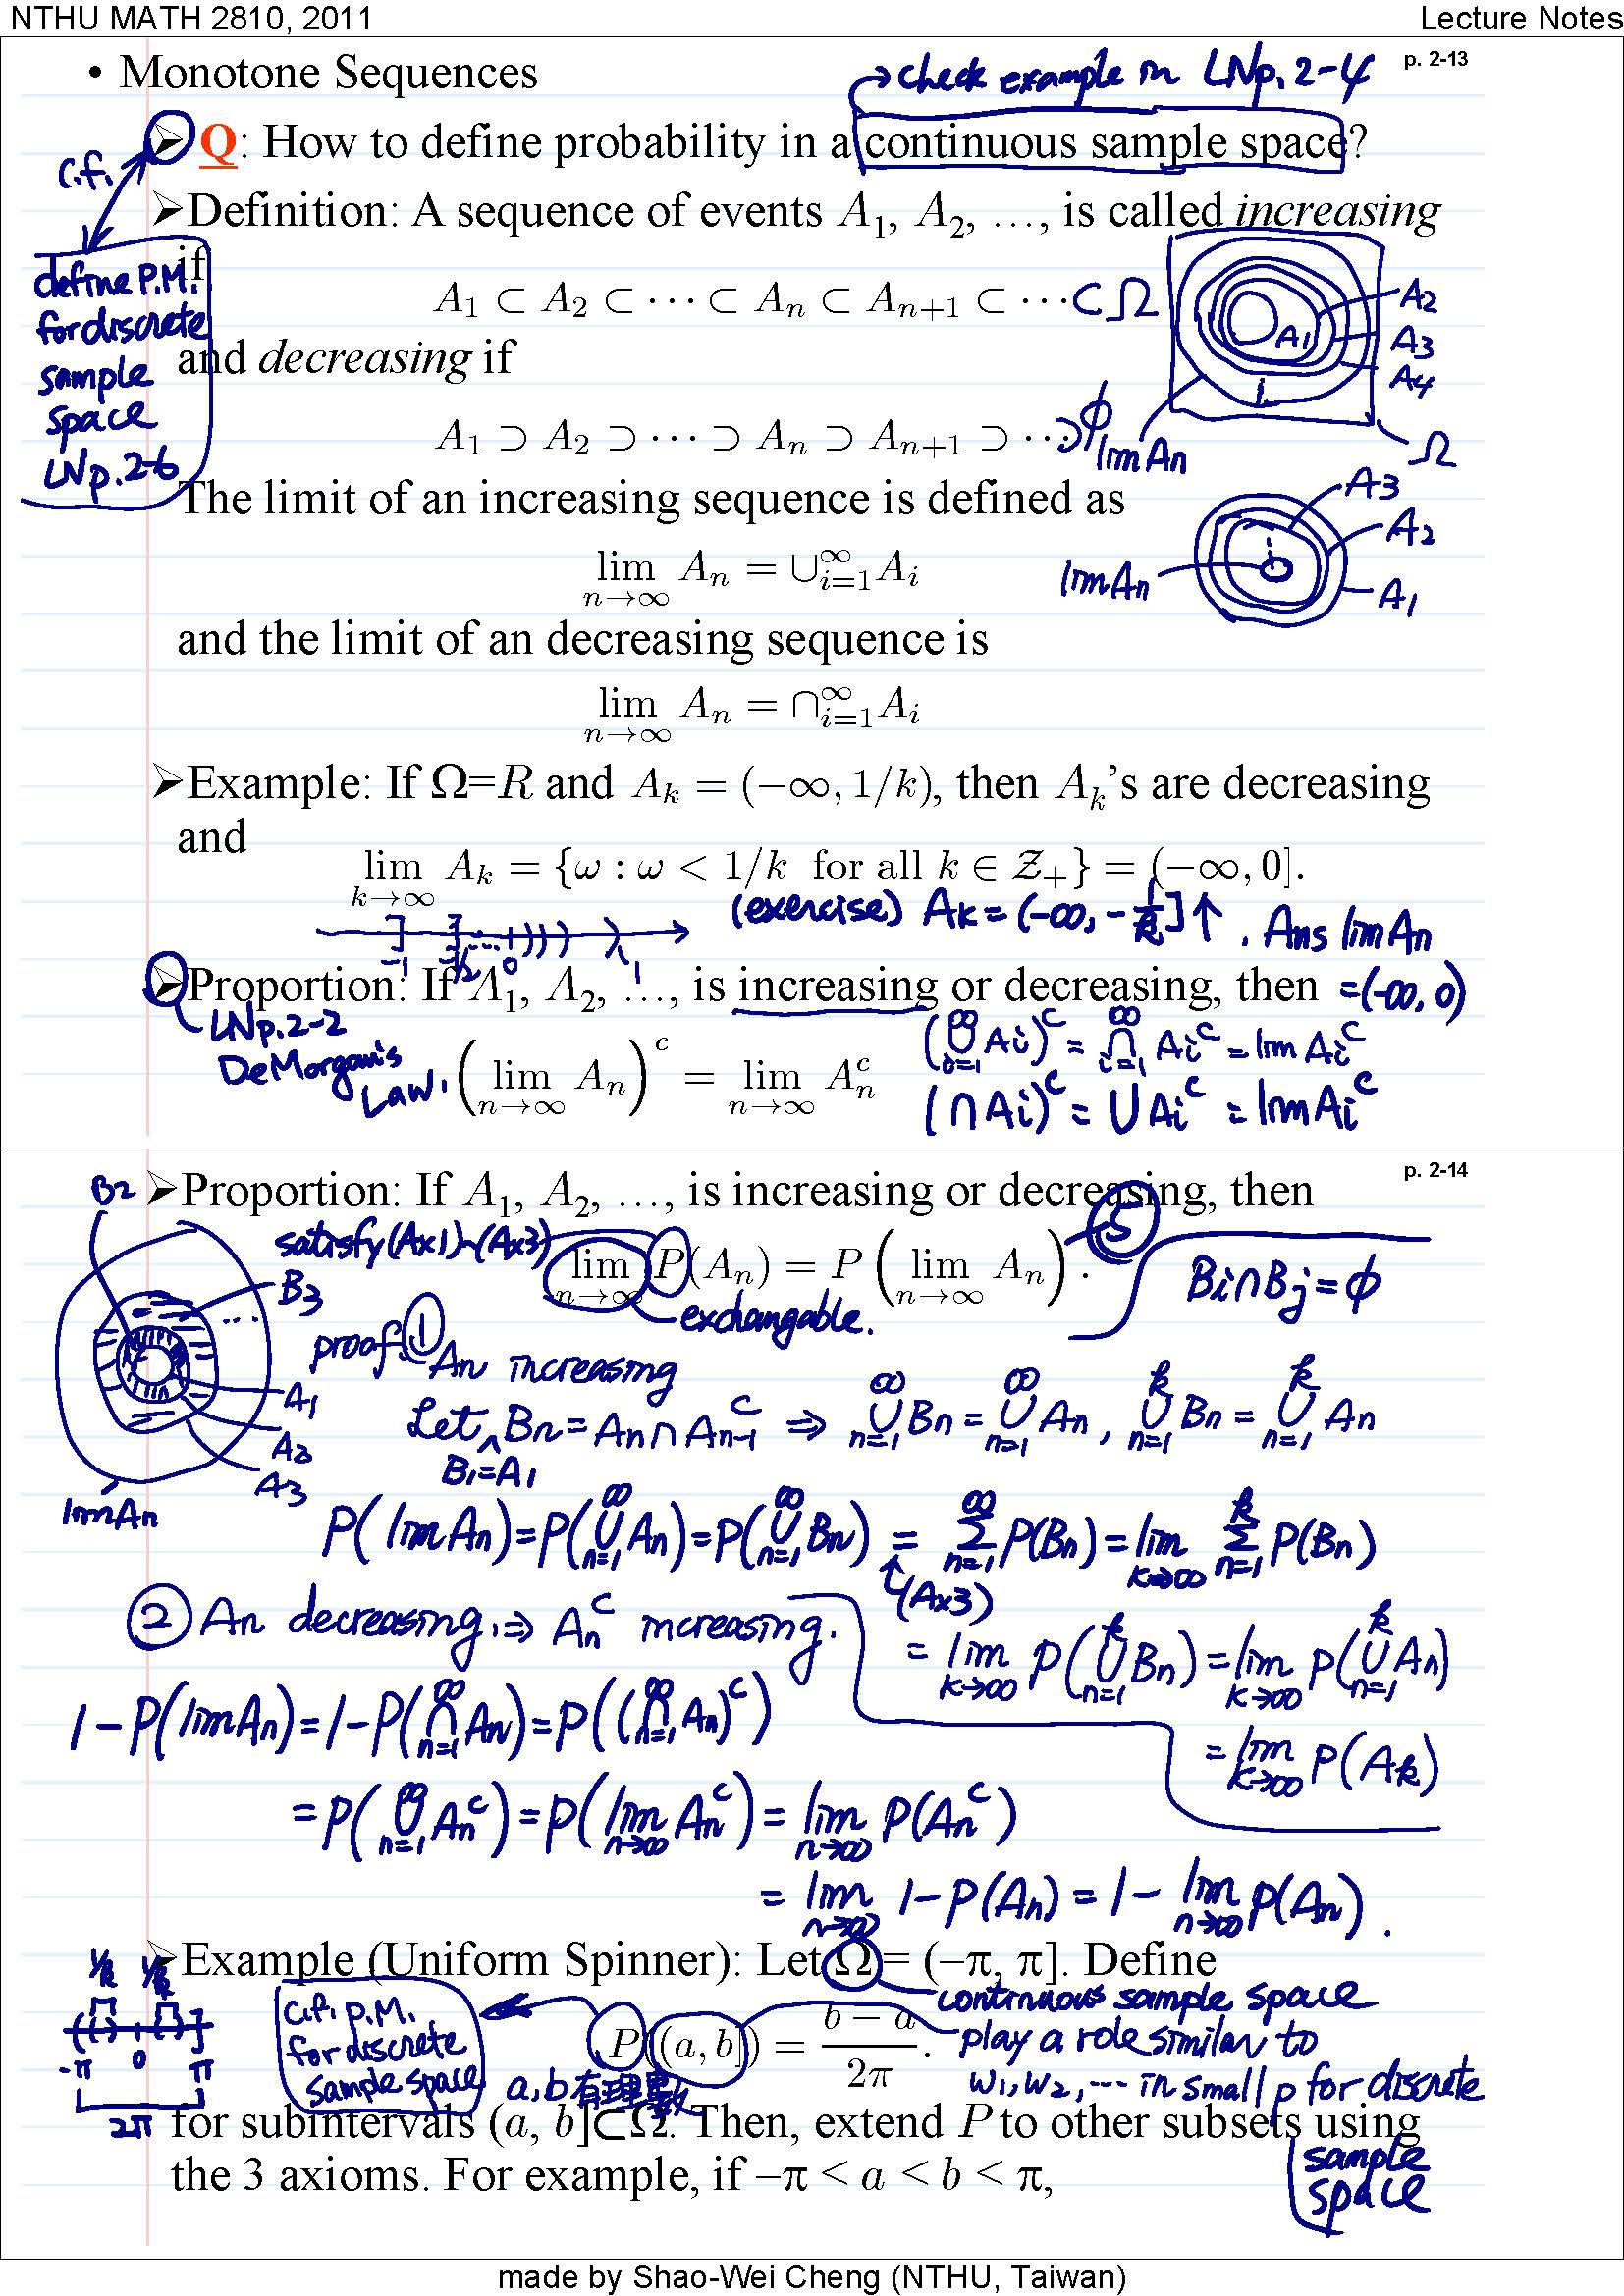 NTHU MATH 2810, 2011
Lecture Notes
p. 2-13
• Monotone Sequences
check example in LNp. 2-4
➢ Q: How to define probability in a continuous sample space?
c.f.
define P.M. for discrete sample space LNp. 2-6
➢ Definition: A sequence of events A₁, A₂, …, is called increasing
if
A₁ ⊂ A₂ ⊂ ··· ⊂ Aₙ ⊂ Aₙ₊₁ ⊂ ··· ⊂ Ω
A1 A2 A3 A4
lim An
Ω
and decreasing if
A₁ ⊃ A₂ ⊃ ··· ⊃ Aₙ ⊃ Aₙ₊₁ ⊃ ··· ⊃ φ
The limit of an increasing sequence is defined as
A3
A2
A1
lim An
lim_{n→∞} Aₙ = ∪_{i=1}^∞ Aᵢ
and the limit of an decreasing sequence is
lim_{n→∞} Aₙ = ∩_{i=1}^∞ Aᵢ
➢ Example: If Ω=R and Aₖ = (−∞, 1/k), then Aₖ's are decreasing
and
lim_{k→∞} Aₖ = {ω : ω < 1/k for all k ∈ 𝒵₊} = (−∞, 0].
(exercise) Ak = (-∞, -1/k] ↑. Ans lim An
= (-∞, 0)
-1 -1/2 0 1
➢ Proportion: If A₁, A₂, …, is increasing or decreasing, then
LNp. 2-2
DeMorgan's Law.
(lim_{n→∞} Aₙ)^c = lim_{n→∞} Aₙ^c
(∪_{i=1}^∞ Ai)^c = ∩_{i=1}^∞ Ai^c = lim Ai^c
(∩Ai)^c = ∪Ai^c = lim Ai^c
p. 2-14
➢ Proportion: If A₁, A₂, …, is increasing or decreasing, then
satisfy (Ax1)~(Ax3)
lim_{n→∞} P(Aₙ) = P(lim_{n→∞} Aₙ).
exchangable.
Bi∩Bj = φ
B2
B3
...
A1
A2
A3
lim An
proof. ① An increasing
Let B1=A1 Bn = An ∩ An-1^c ⇒ ∪_{n=1}^∞ Bn = ∪_{n=1}^∞ An, ∪_{n=1}^k Bn = ∪_{n=1}^k An
P(lim An) = P(∪_{n=1}^∞ An) = P(∪_{n=1}^∞ Bn) = Σ_{n=1}^∞ P(Bn) = lim_{k→∞} Σ_{n=1}^k P(Bn)
(Ax3)
= lim_{k→∞} P(∪_{n=1}^k Bn) = lim_{k→∞} P(∪_{n=1}^k An)
= lim_{k→∞} P(Ak)
② An decreasing, ⇒ An^c increasing.
1-P(lim An) = 1-P(∩_{n=1}^∞ An) = P((∩_{n=1}^∞ An)^c)
= P(∪_{n=1}^∞ An^c) = P(lim_{n→∞} An^c) = lim_{n→∞} P(An^c)
= lim_{n→∞} 1-P(An) = 1- lim_{n→∞} P(An).
➢ Example (Uniform Spinner): Let Ω = (−π, π]. Define
continuous sample space
1/k 1/k
-π 0 π
2π
c.f. P.M. for discrete sample space
P((a, b]) = (b − a)/2π.
play a role similar to
w1, w2, ... in small p for discrete sample space
a, b 有理數
for subintervals (a, b]⊂Ω. Then, extend P to other subsets using
the 3 axioms. For example, if −π < a < b < π,
made by Shao-Wei Cheng (NTHU, Taiwan)